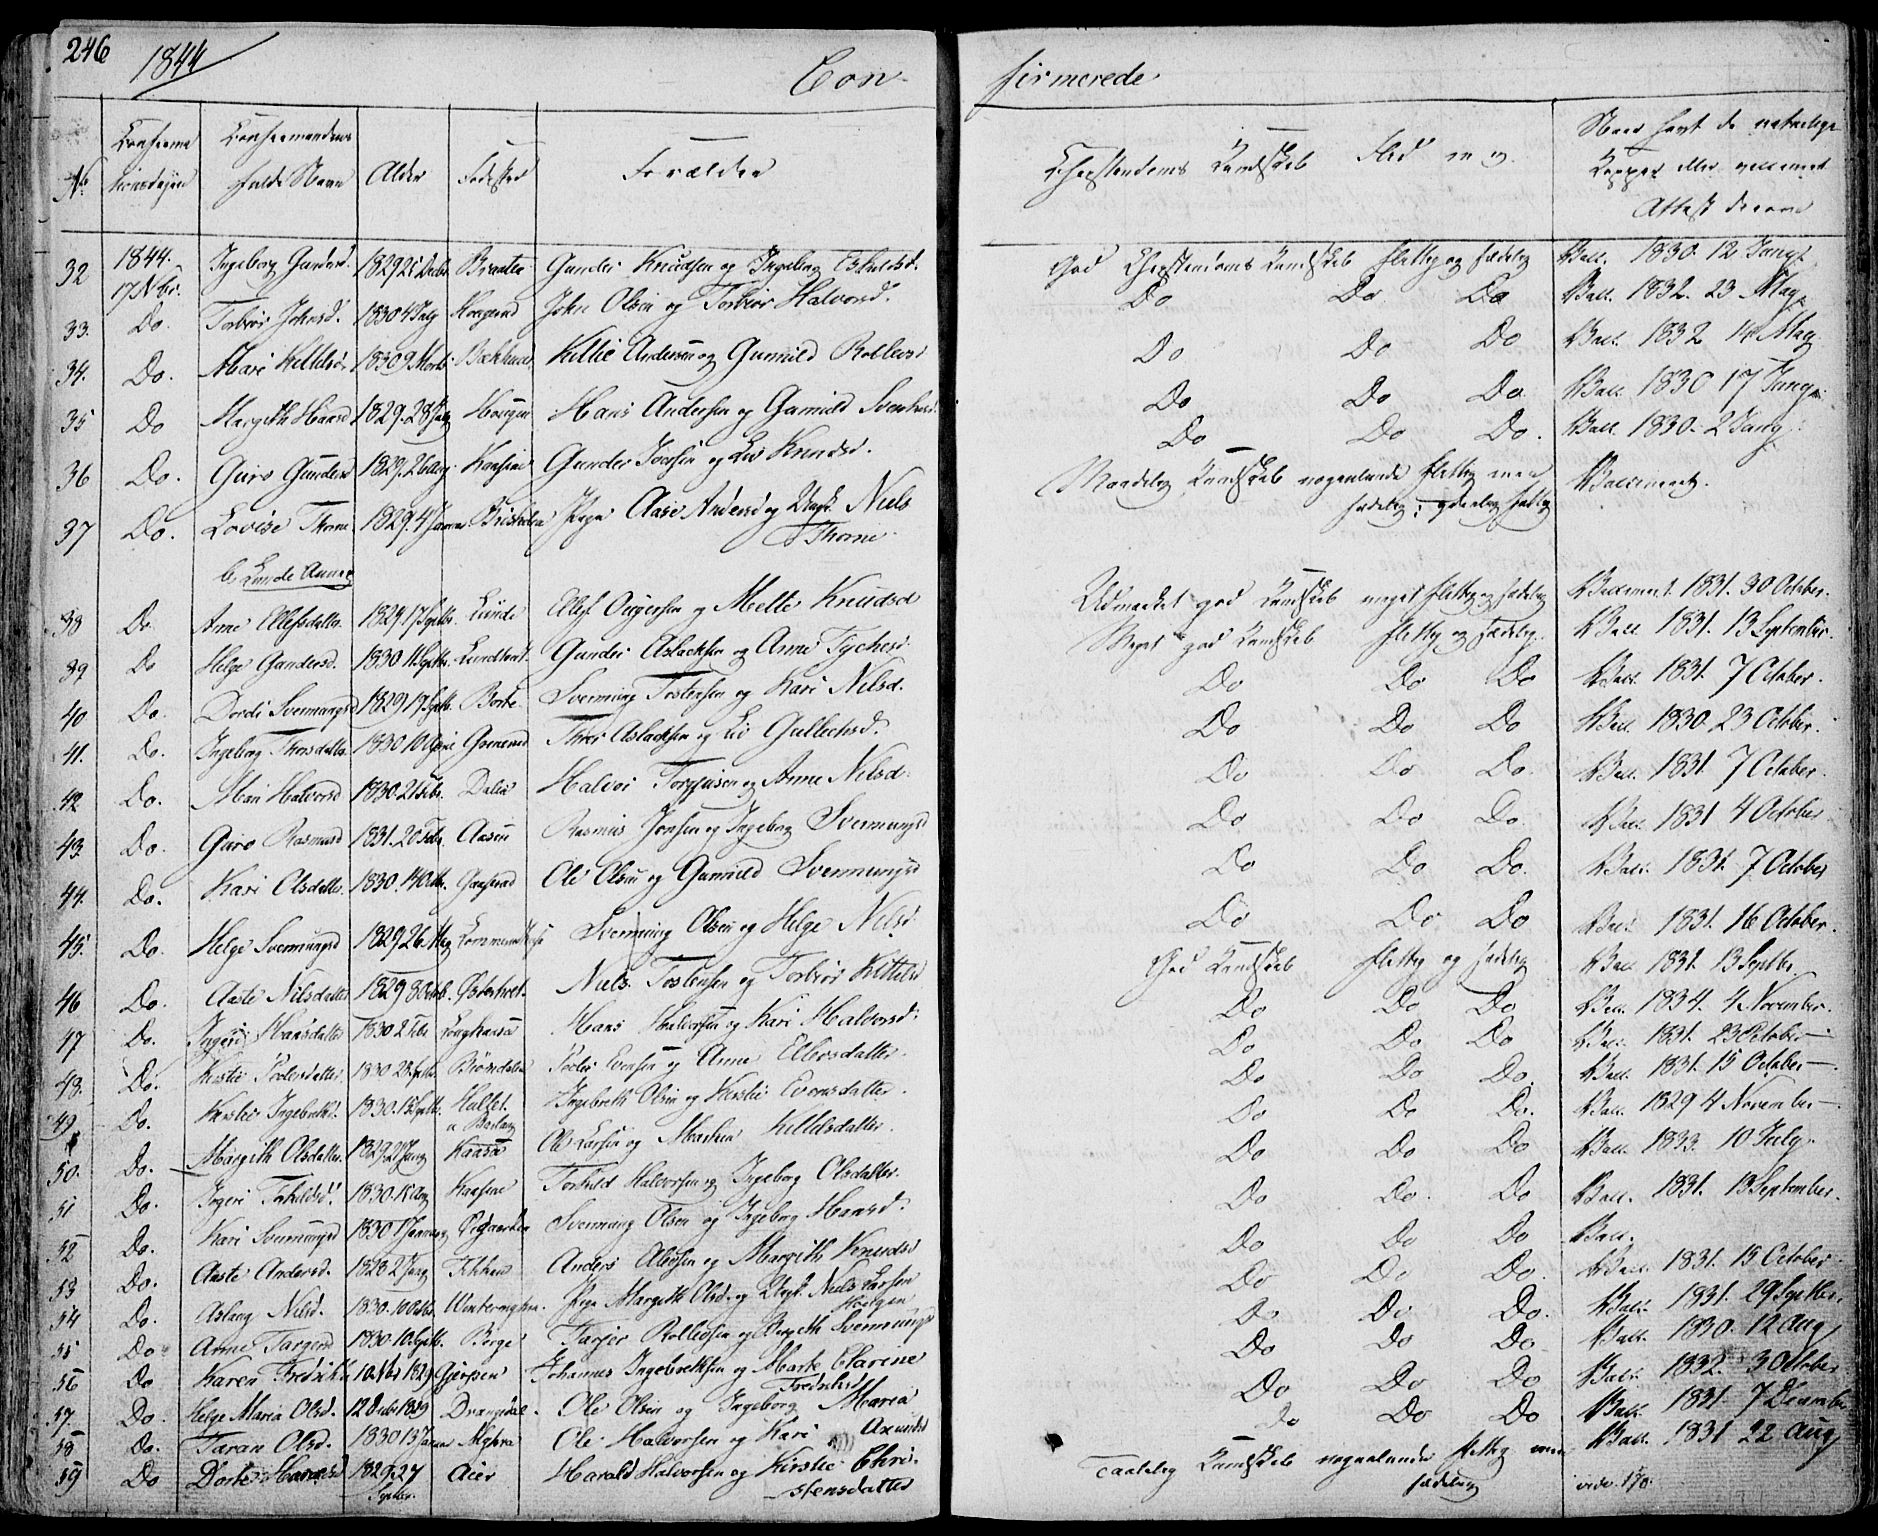 246 1844 Con- firmerede
No Confirma tionsdagen Confirmandens fulde Navn Alder Fødested Forældre Christendoms Kundskab Flid m. v. Naar havt de naturlige Kopper eller vaccineret Attest derom
32 1844. 17 Nbr. Ingeborg Gundersd. 1829 21 Decbr Braaten Gunder Knudsen og Ingeborg Eskildsd. God Christendoms Kundskab flittig og sædelig Vacc. 1830 12 Juny
33. Do. Torbiør Johnsd. 1830 4 July John Olsen og Torbiør Halvorsd. Do Do Do Vacc. 1832. 23 May
34. Do. Mari Kittilsd. 1830 9 Marts Bækhuus Kittil Andersen og Gunnild Rollevsd Do Do Do Vacc. 1832 14 May
35 Do Margith Hansd 1829. 28 July Haugen Hans Andersen og Gunnild Svenkesd. Do Do Do Vacc. 1830 17 Juny
36 Do. Guro Gundersd 1829. 26 Aug. Kaasine Gunder Joersen og Liv Knudsd. Do Do Do. Vacc. 1830. 2 Juny
37 Do. Lovise Thorne 1829. 4 Januar Pige Aase Andersd og Ungk. Niels Thorne Maadelig Kundskab nogenlunde flittig men sædelig; Vaccineret.
b. Lunde Annex
38 Do Anne Ellefsdatter 1829 17 Septbr. Lunde Ellef Augersen og Mette Knudsd Udmærket god Kundskab meget flittig og sædelig Vaccineret 1831. 30 October.
39 Do Helge Gundersd. 1830 11 Septbr. Lundtveit Gunder Aslacksen og Anne Tychesd. Meget god Kundskab flittig og sædelig. Vacc. 1831. 13 September.
40 Do. Dordi Svenungsd 1829 17 Septb. Borte Svennung Tostensen og Kari Nilsd. Do Do Do Vacc. 1831. 7 October.
41. Do. Ingeborg Thorsdatter 1830 10 Thor Aslacksen og Liv Gullechsd. Do Do Do Vacc. 1830. 23 October.
42 Do. Mari Halvorsd 1830. 21 Febr. Dalen Halvor Torjusen og Anne Nilsd. Do Do Do. Vacc. 1831. 7 October.
43. Do. Guro Rasmusd 1831. 20 Febr. Aasen Rasmus Jensen og Ingeborg Svennungsd Do Do Do. Vacc. 1831 4 October
44. Do. Kari Olsdatter. 1830. 14 Octbr. Ole Olsen og Gunnild Svennungsd Do Do Do. Vacc. 1831. 7 October
45. Do. Helge Svennungsd 1829 26 May Svennung Olsen og Helge Nilsd Do Do Do Vacc. 1831. 16 October.
46 Do. Aaste Nilsdatter 1829 30 Octb. Østerhvet. Niels Tostensen og Torbiør Kittilsd God Kundskab flittig og sædelig Vacc. 1831. 13 Septbr.
47 Do. Ingeri Hansdatter 1830 2 Febr Hans Halvorsen og Kari Halvorsd. Do Do Do Vacc. 1834. 4 November.
48. Do. Kirstie Pedersdatter 1830 23 Septb. Biørndalen Peder Evensen og Anne Ellevsdatter. Do Do Do Vacc. 1831. 23 October
49 Do. Kirstie Ingebrethsd. 1830. 15 Septb. Ingebreth Olsen og Kirstie Evensdatter. Do Do Do Vacc. 1831. 15 October
50. Do. Margith Olsdatter. 1829 21 Juny Kaasa Ole Larsen og Maren Kittilsdatter. Do Do Do. Vacc. 1829 4 November
51 Do. Ingeri Torkildsd. 1830. 18 Aug Kaasene Torkild Halvorsen og Ingeborg Olsdatter. Do Do Do Vacc. 1833. 10 July.
52 Do. Kari Svennungsd 1830 17 January Svennung Olsen og Ingeborg Hansd. Do Do. Do Vacc. 1831. 13 September.
53 Do. Aaste Andersd. 1828 2 Juny Anders Alfsen og Margith Knudsd Do Do Do Vacc.
54 Do. Aslaug Nilsd. 1830. 10 Octbr. Pige Margith Olsd. og Ungk. Niels Larsen Haugen Do Do Do. Vacc. 1831. 15 October
55 Do Anne Targesd 1830. 10 Septb. Borge Tarjer Rollevsen og Bergeth Svennungsd Do Do Do. Vacc. 1831. 29 Septbr.
56 Do Karen Fredrikke 10 Nbr 1829 Gjerpsen Johannes Ingebrethsen og Marte Clarine Fredriksd Do Do Do Vacc. 1830. 12 Aug
57. Do. Helge Maria Olsd. 12 Decbr 1829 Drangedal. Ole Olsen og Ingeborg Maria Do Do Do Vacc. 1832. 3 October
58 Do. Taran Olsd. 1830 13 Januar Ole Halvorsen og Kari Axundsd Do Do Do Vacc. 1831. 7 December
59 Do Dorte Haraldsd 1829. 27 Septbr. Aaer Harald Halvorsen og Kirstie Christensdatter Taalelig Kundskab nogenlunde flittig men sædelig Vacc. 1831 22 Aug vide 170.